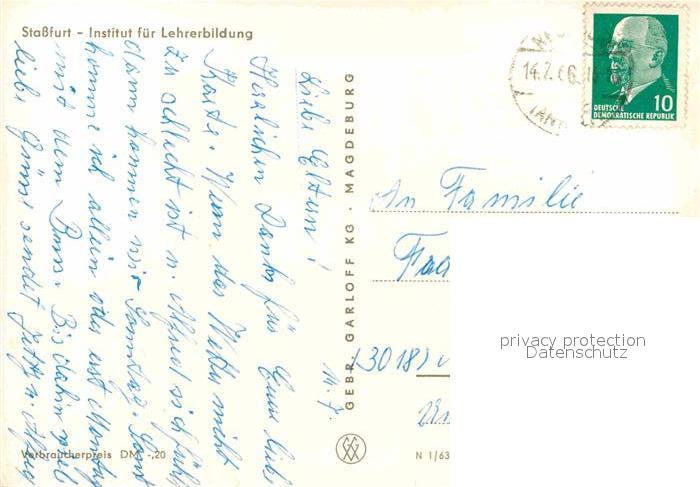 Staßfurt - Institut für Lehrerbildung
14.7.
Liebe Eltern!
Herzlichen Dank für Eure liebe
Karte. Wenn das Wetter nicht
zu schlecht ist u. Alfred sich fühlt
dann kommen wir Sonntag. Sonst
komme ich allein oder erst Montag
mit dem Bus. Bis dahin viel
liebe Grüsse sendet u.
Verbraucherpreis DM -,20
GEBR. GARLOFF KG · MAGDEBURG
N 1/63
14.7.66
DEUTSCHE
DEMOKRATISCHE REPUBLIK
10
An Familie
(3018)
privacy protection
Datenschutz